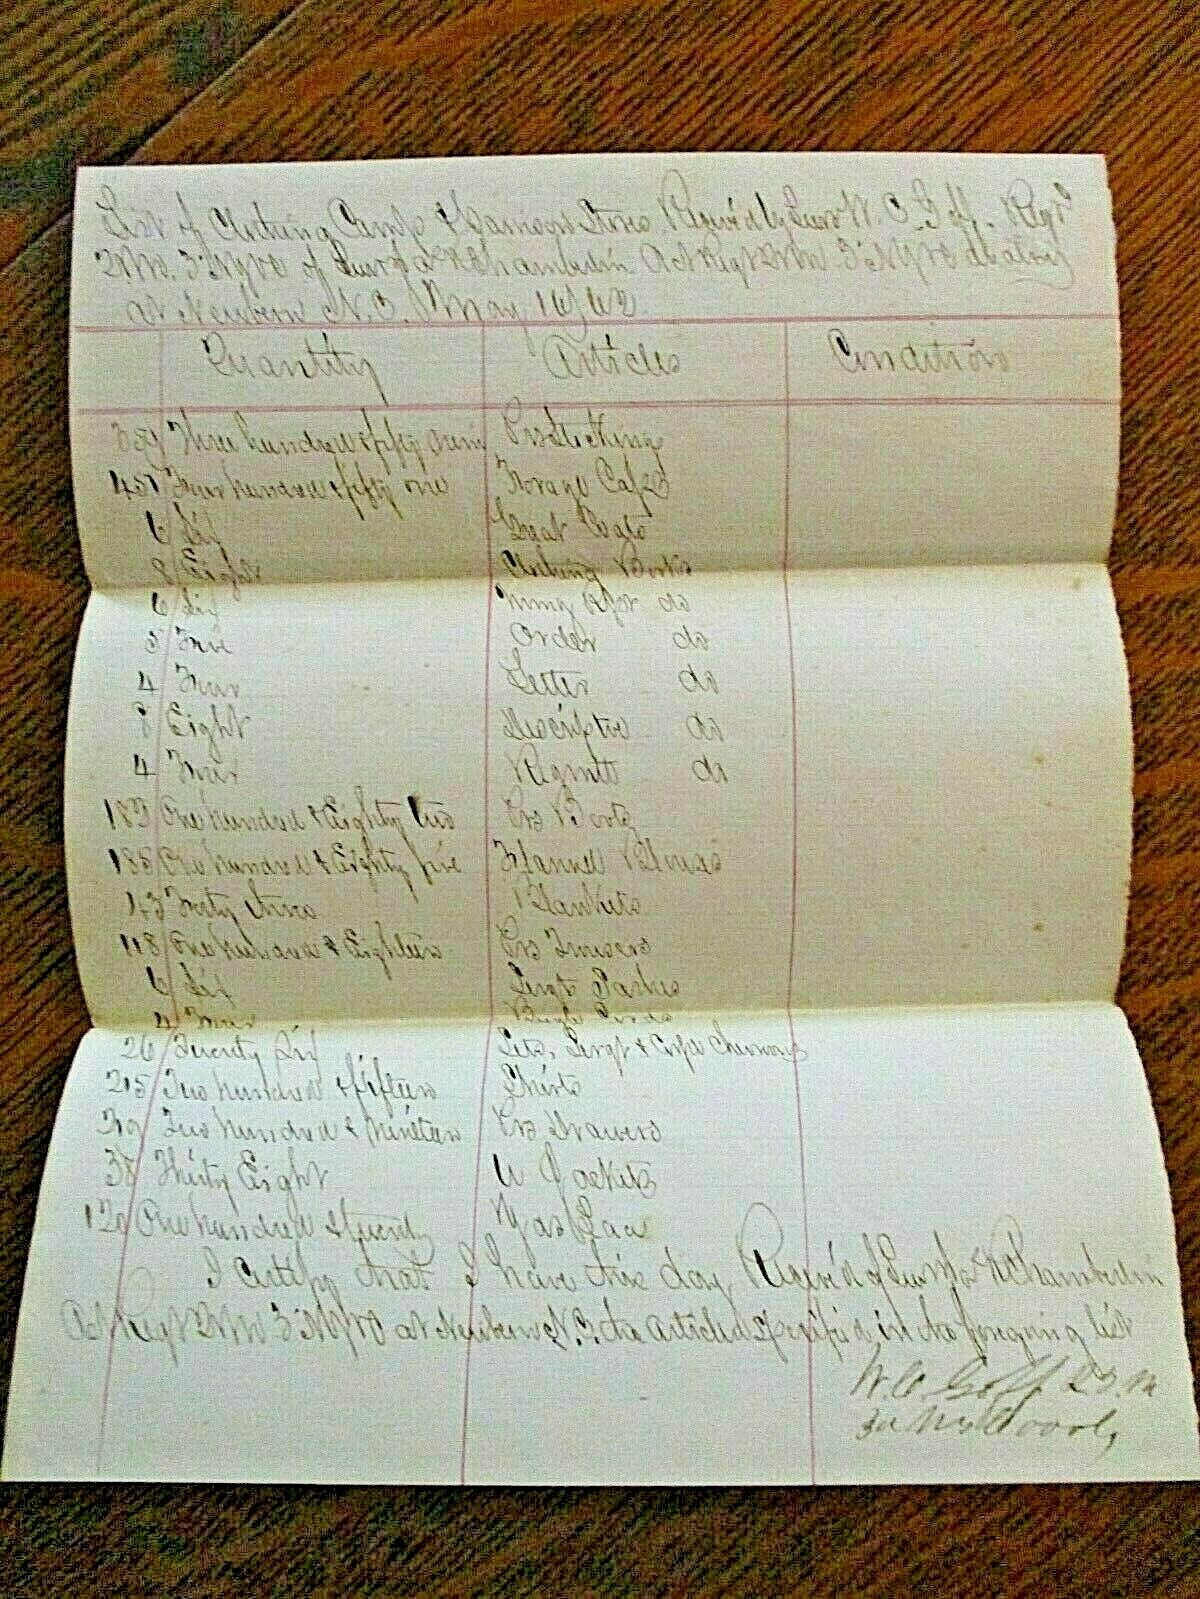 List of Clothing Camp & Garrison Stores Receiv'd by Lieut W. C. Goff. Regt
2r Mr. 3' N.Y. of Lieut Chamberlin Act Regt 2r Mr 3' N.Y. Cavalry
at Newbern N.C. May 16/62
Quantity Articles Condition
359 Three hundred & fifty Prs Stockings
451 Four hundred & fifty one Forage Caps
6 Six Great Coats
8 Eight Clothing Books
6 Six Mng Rept do
5 Five Order do
4 Four Letter do
8 Eight Descriptve do
4 Four Regmtl do
182 One hundred & Eighty two Prs Boots
185 One hundred & Eighty five Flannel Blouses
43 Forty three Blankets
118 One hundred & Eighteen Prs Trousers
6 Six Sergts Sashes
4 Four Bugle
26 Twenty Six Sets, Sergt & Corpl Chevrons
215 Two hundred & fifteen Shirts
219 Two hundred & Nineteen Prs Drawers
38 Thirty Eight U Jackets
120 One hundred & twenty Yds Lace
I Certify that I have this day Receiv'd of Lieut Chamberlin
Act Regt 2r Mr 3' N.Y. at Newbern N.C. the articles specified in the foregoing list
W. C. Goff 2r. M
3d N.Y. Cavaly